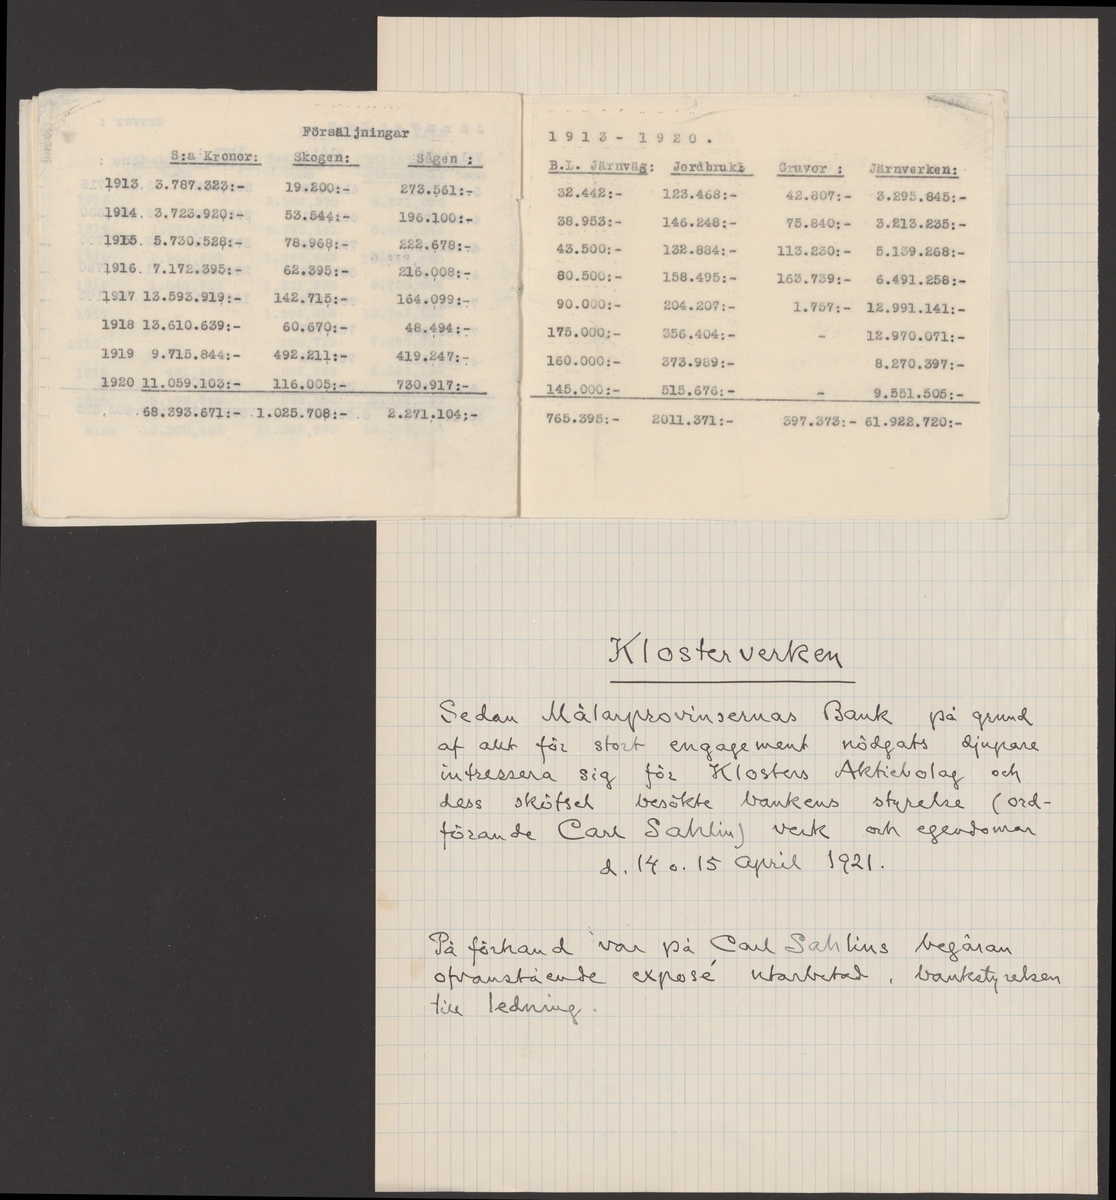 Försäljningar
S:a Kronor: Skogen: Sågen :
1913. 3.787.323:- 19.200:- 273.561:-
1914. 3.723.920:- 53.544:- 196.100:-
1915. 5.730.528:- 78.968:- 222.678:-
1916. 7.172.395:- 62.395:- 216.008:-
1917 13.593.919:- 142.715:- 164.099:-
1918 13.610.639:- 60.670:- 48.494:-
1919 9.715.844:- 492.211:- 419.247:-
1920 11.059.103:- 116.005:- 730.917:-
68.393.671:- 1.025.708:- 2.271.104;-
1913-1920.
B.L. Järnväg: Jordbruk: Gruvor : Järnverken:
32.442:- 123.468:- 42.807:- 3.295.845:-
38.953:- 146.248:- 75.840:- 3.213.235:-
43.500:- 132.884:- 113.230:- 5.139.268:-
80.500:- 158.495:- 163.739:- 6.491.258:-
90.000:- 204.207:- 1.757:- 12.991.141:-
175.000;- 356.404:- - 12.970.071:-
160.000:- 373.989:- 8.270.397:-
145.000:- 515.676:- - 9.551.505:-
765.395:- 2011.371:- 397.373:- 61.922.720:-
Klosterverken
Sedan Mälarprovinsernas Bank på grund
af allt för stort engagement nödgats djupare
intressera sig för Klosters Aktiebolag och
dess skötsel besökte bankens styrelse (ord-
förande Carl Sahlin) verk och egendomar
d. 14 o. 15 april 1921.
På förhand var på Carl Sahlins begäran
ofvanstående exposé utarbetad, bankstyrelsen
till ledning.